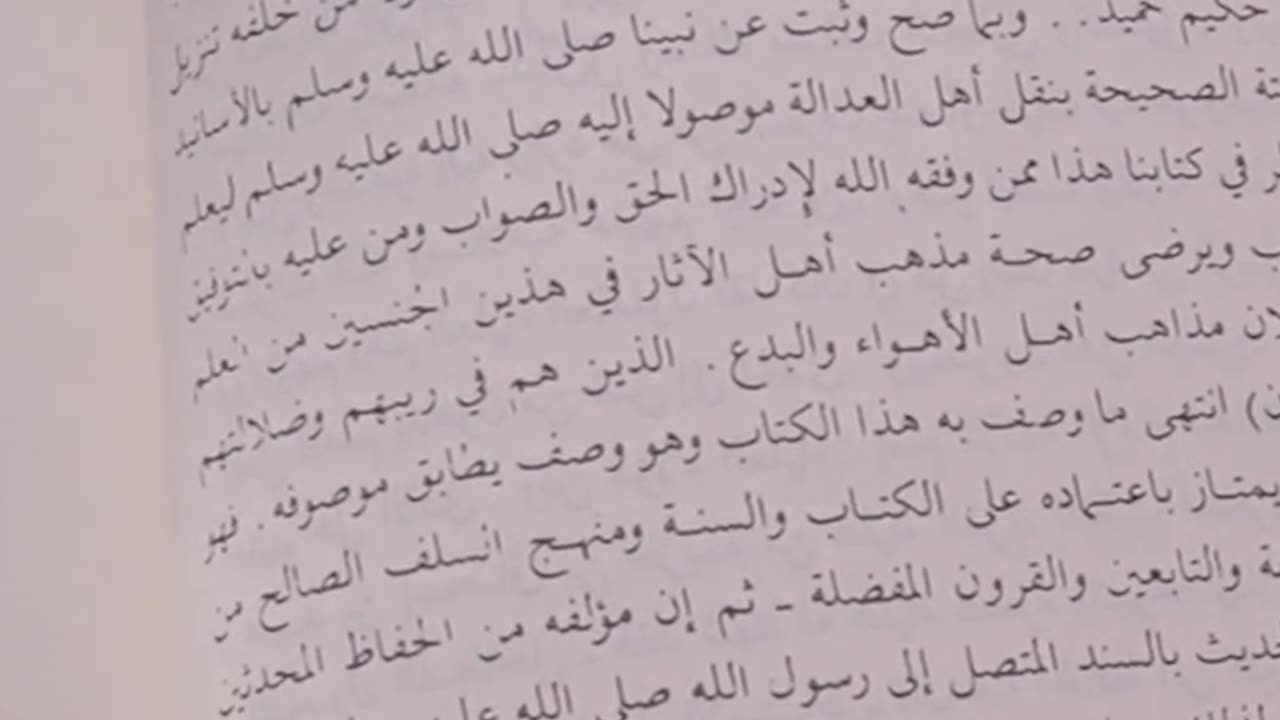 من خلفه تنزيل
حكيم حميد . . وبما صح وثبت عن نبينا صلى الله عليه وسلم بالأسانيد
الصحيحة بنقل أهل العدالة موصولا إليه صلى الله عليه وسلم ليعلم
في كتابنا هذا ممن وفقه الله لإدراك الحق والصواب ومن عليه بالتوفيق
ويرضى صحة مذهب أهل الآثار في هذين الجنسين من العلم
مذاهب أهل الأهواء والبدع . الذين هم في ريبهم وضلالتهم
انتهى ما وصف به هذا الكتاب وهو وصف يطابق موصوفه . فهو
يمتاز باعتماده على الكتاب والسنة ومنهج السلف الصالح من
والتابعين والقرون المفضلة ـ ثم إن مؤلفه من الحفاظ المحدثين
بالسند المتصل إلى رسول الله صلى الله